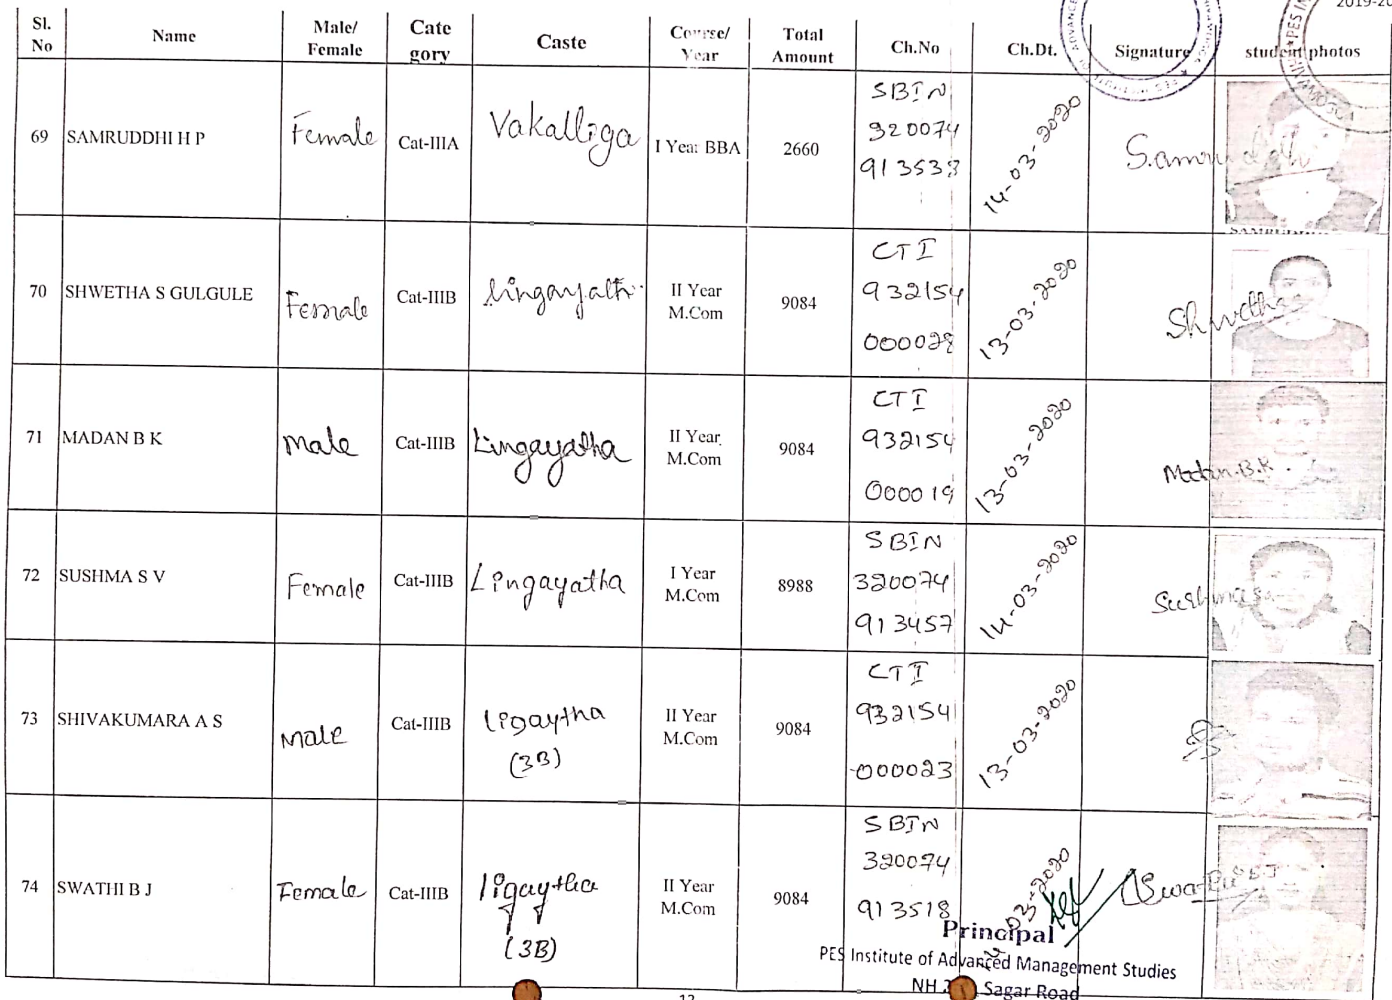 2019-20
Sl. No Name Male/ Female Cate gory Caste Course/ Year Total Amount Ch.No Ch.Dt. Signature student photos
69 SAMRUDDHI H P Female Cat-IIIA Vakalliga I Year BBA 2660 SBIN 320074 913533 14-03-2020
70 SHWETHA S GULGULE Female Cat-IIIB lingayath II Year M.Com 9084 CTI 932154 000028 13-03-2020 Shwetha
71 MADAN B K Male Cat-IIIB Lingayatha II Year M.Com 9084 CTI 932154 000019 13-03-2020 Madan.B.K.
72 SUSHMA S V Female Cat-IIIB Lingayatha I Year M.Com 8988 SBIN 320074 913457 14-03-2020
73 SHIVAKUMARA A S Male Cat-IIIB ligaytha (3B) II Year M.Com 9084 CTI 932154 000023 13-03-2020
74 SWATHI B J Female Cat-IIIB ligaytha (3B) II Year M.Com 9084 SBIN 320074 913518 14-03-2020
Principal
PES Institute of Advanced Management Studies
NH Sagar Road
12